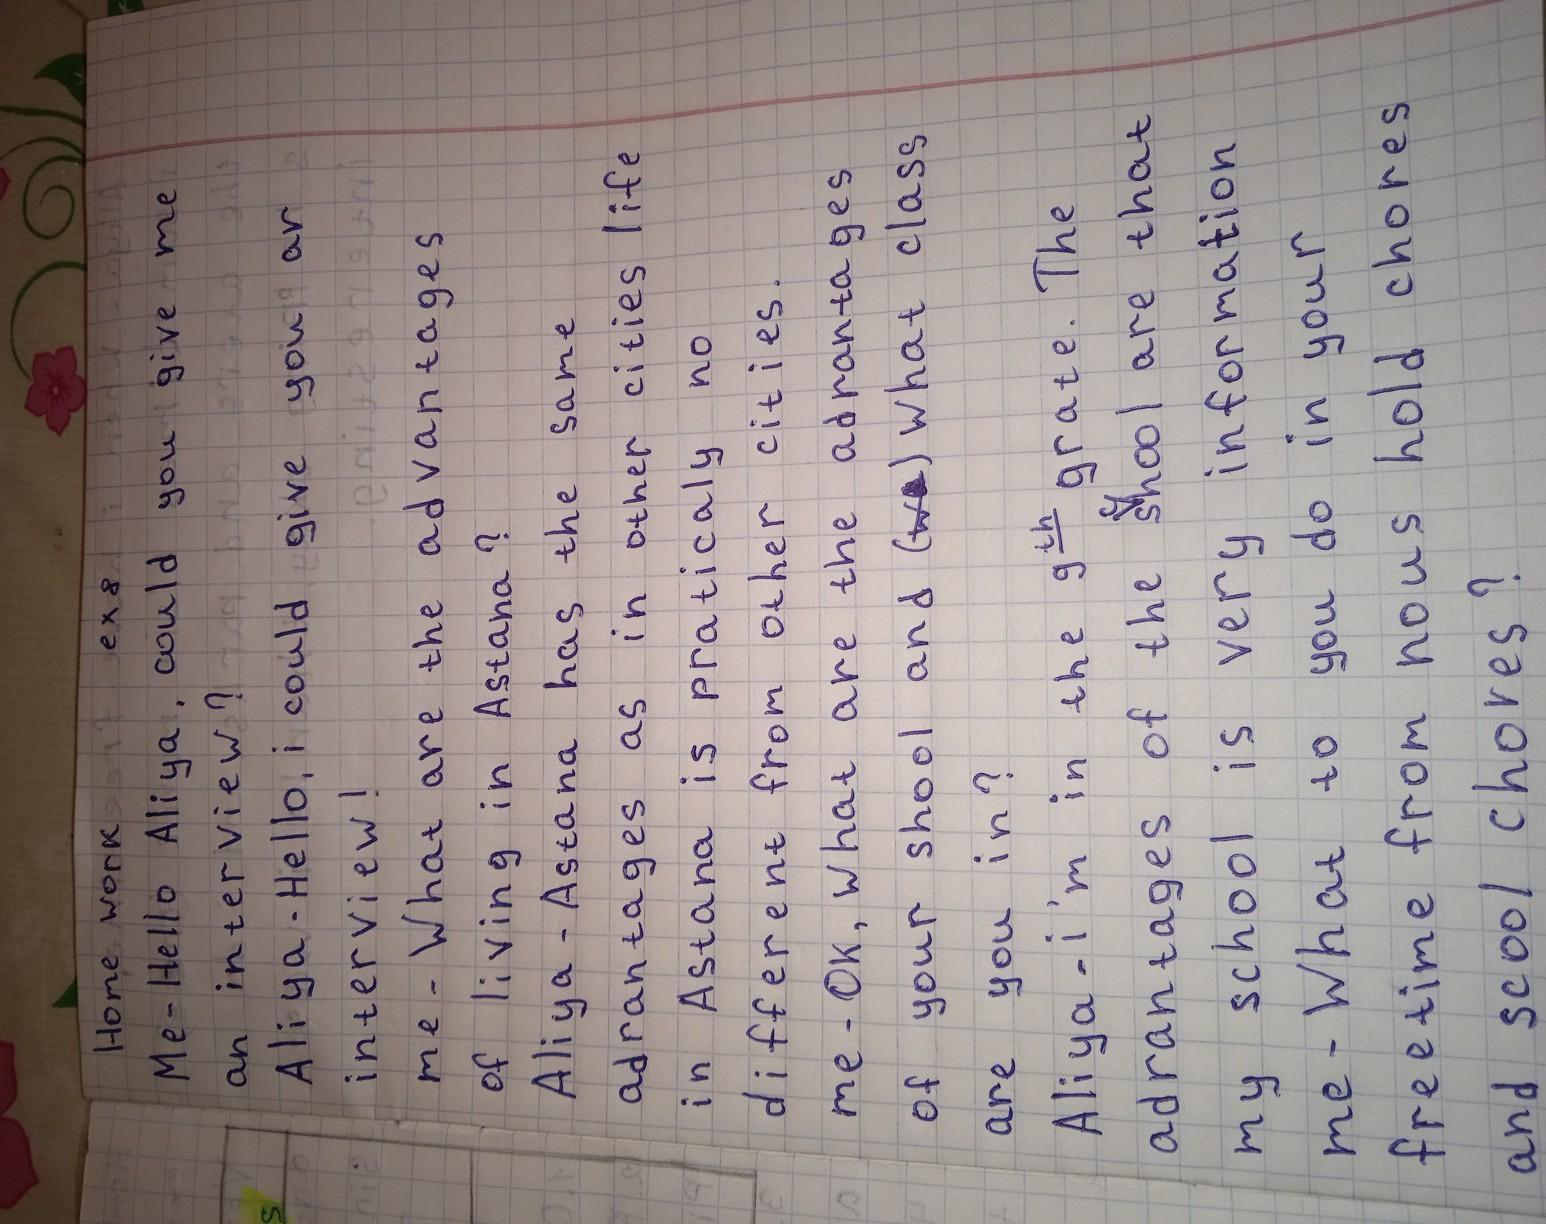 Home work ex 8
Me-Hello Aliya, could you give me
an interview?
Aliya-Hello, i could give you an
interview!
me-What are the advantages
of living in Astana?
Aliya-Astana has the same
adrantages as in other cities life
in Astana is praticaly no
different from other cities.
me-OK, what are the adrantages
of your shool and (we) what class
are you in?
Aliya-i'm in the 9th grate. The
adrantages of the school are that
my school is very information
me-What to you do in your
freetime from hous hold chores
and scool chores?